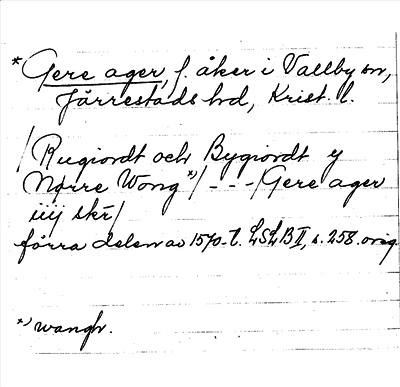 * Gere ager, f. åker i Vallby sn,
Järrestads hd, Krist. l.
/ Rugiordt och Bygiordt y
Nørre Wong *)/ - - - / Gere ager
iiij skr/
förra delen av 1570-t. LSLB II, s. 258. orig.
*) wangh.